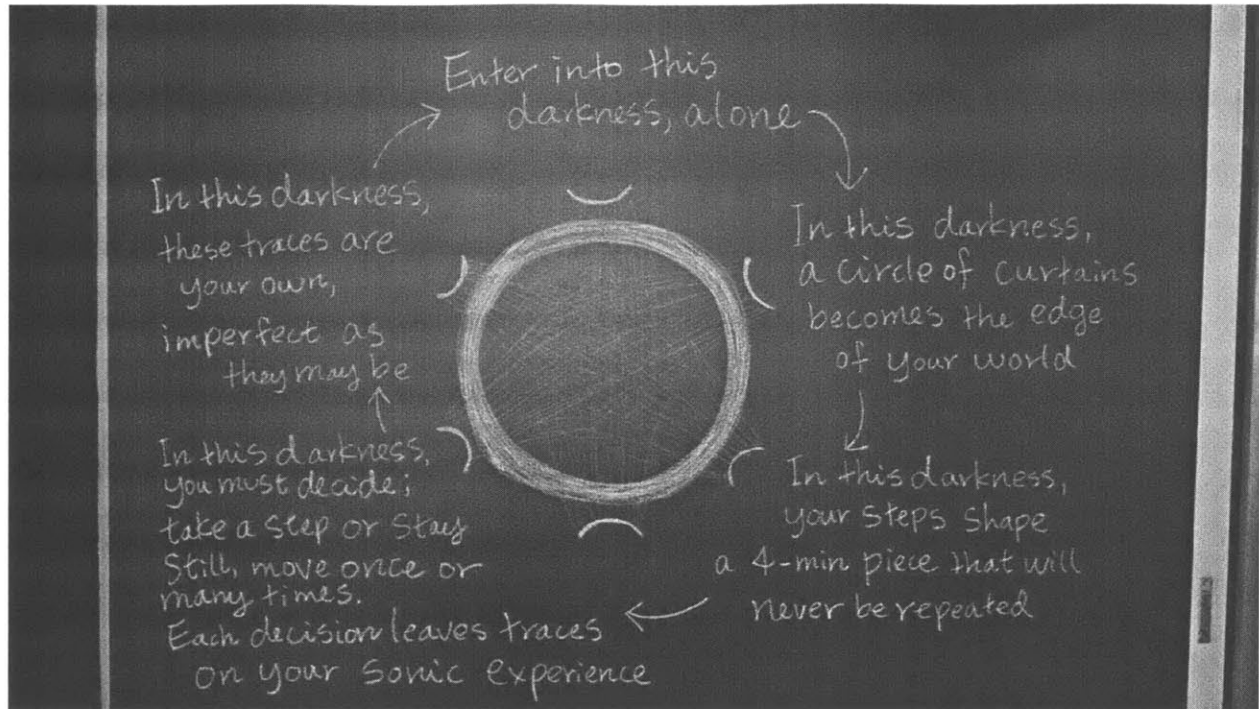 Enter into this
darkness, alone
In this darkness,
a circle of curtains
becomes the edge
of your world
In this darkness,
your steps shape
a 4-min piece that will
never be repeated
In this darkness,
you must decide;
take a step or stay
still, move once or
many times.
Each decision leaves traces
on your sonic experience
In this darkness,
these traces are
your own,
imperfect as
they may be